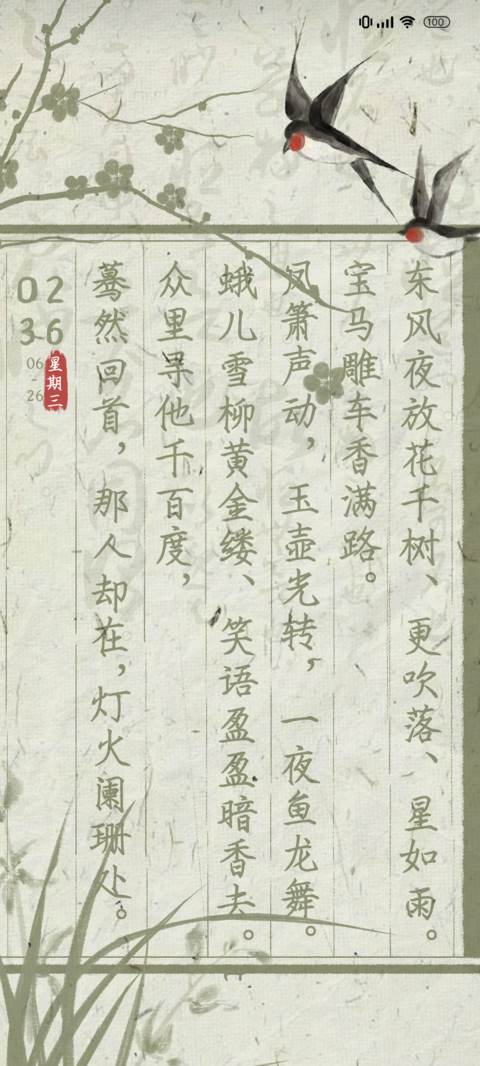 100
东风夜放花千树、更吹落、星如雨。
宝马雕车香满路。
凤箫声动，玉壶光转，一夜鱼龙舞。
蛾儿雪柳黄金缕、笑语盈盈暗香去。
众里寻他千百度，
蓦然回首，那人却在，灯火阑珊处。
02
36
06
-
26
星期三